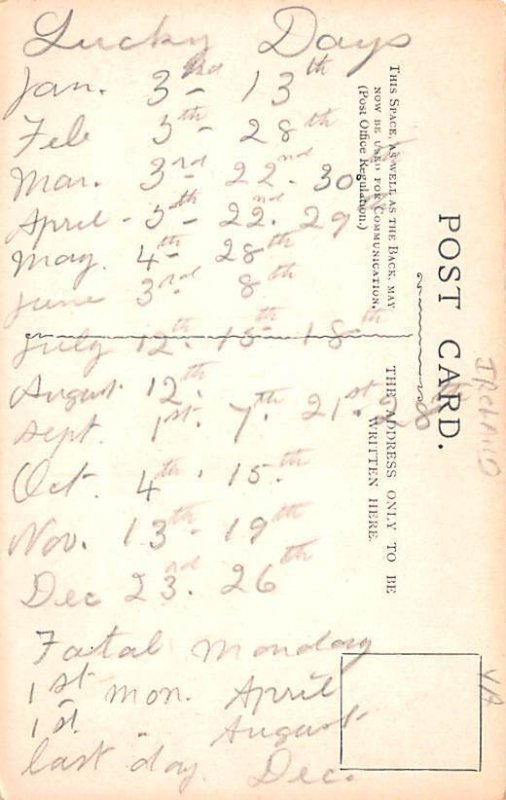 Lucky Days
Jan. 3rd 13th
Feb 5th - 28th
Mar. 3rd 22nd. 30
April - 5th - 22nd. 29
May. 4th 28th
June 3rd 8th
July 12th. 15th 18th
August 12th.
Sept. 1st. 7th. 21st. 28
Oct. 4th. 15th
Nov. 13th - 19th
Dec 23rd. 26th
Fatal Monday
1st Mon. April
1st. " August
last day. Dec.
THIS SPACE, AS WELL AS THE BACK, MAY
NOW BE USED FOR COMMUNICATION.
(Post Office Regulation.)
POST CARD.
THE ADDRESS ONLY TO BE
WRITTEN HERE.
IRELAND